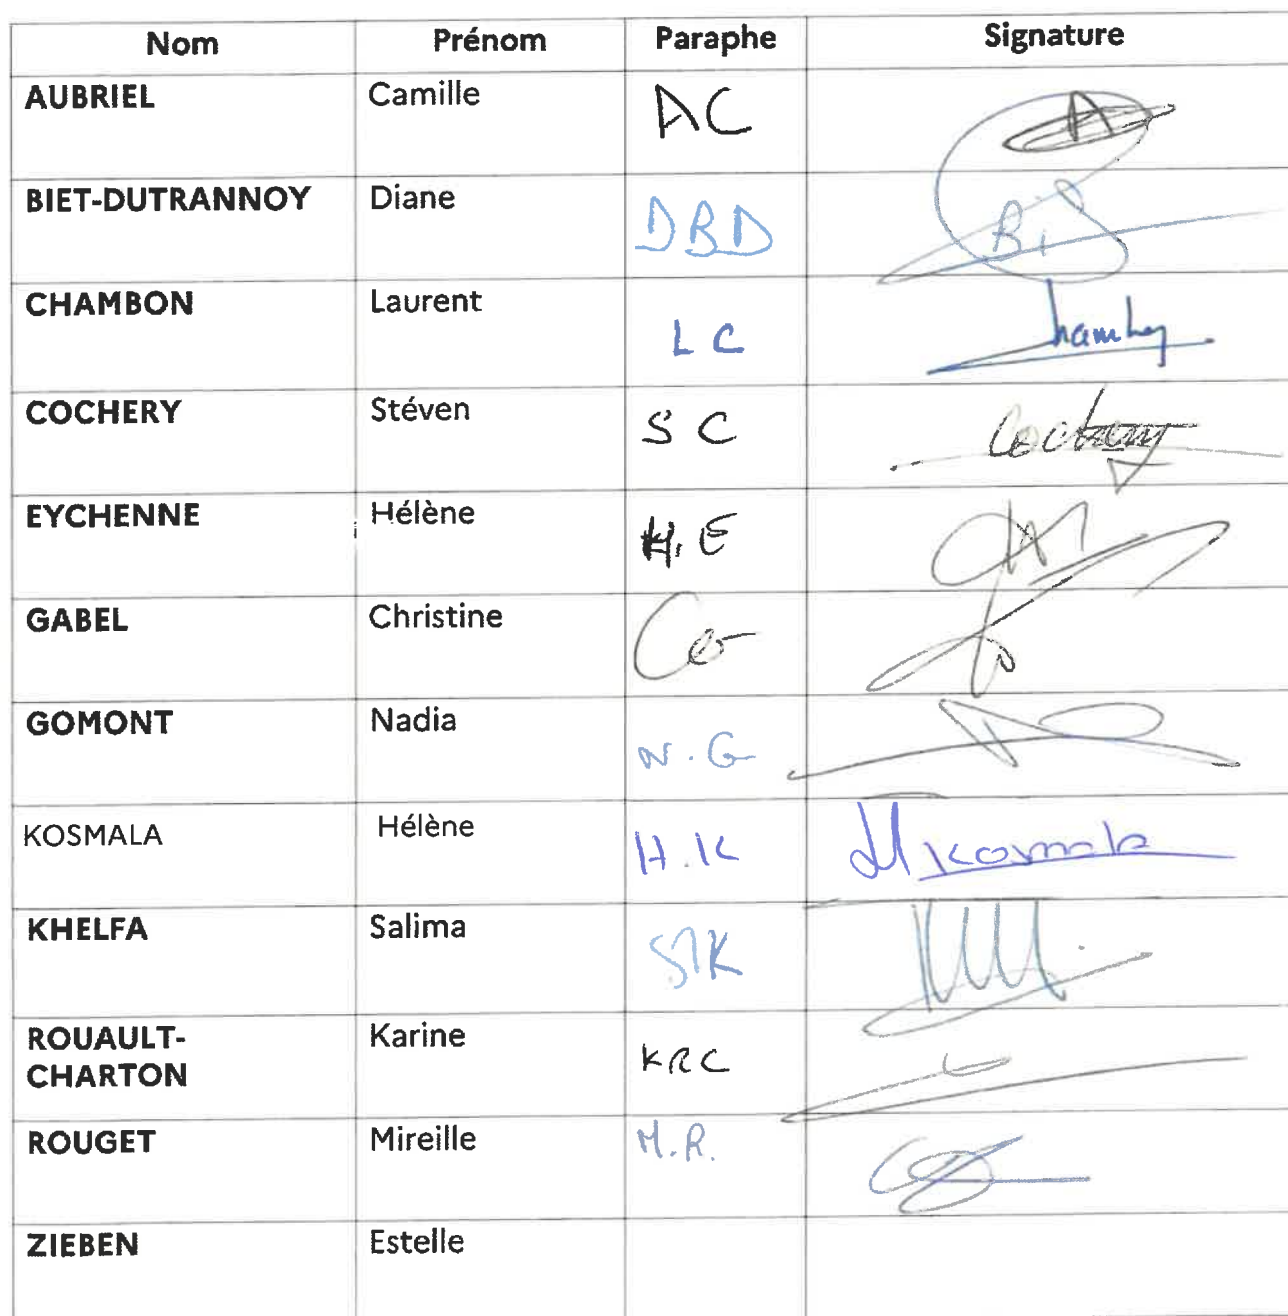 Nom Prénom Paraphe Signature
AUBRIEL Camille AC
BIET-DUTRANNOY Diane DBD
CHAMBON Laurent L C
COCHERY Stéven S C Cochery
EYCHENNE Hélène H.E
GABEL Christine
GOMONT Nadia N.G
KOSMALA Hélène H.K HKosmala
KHELFA Salima SK
ROUAULT-
CHARTON Karine KRC
ROUGET Mireille M.R.
ZIEBEN Estelle